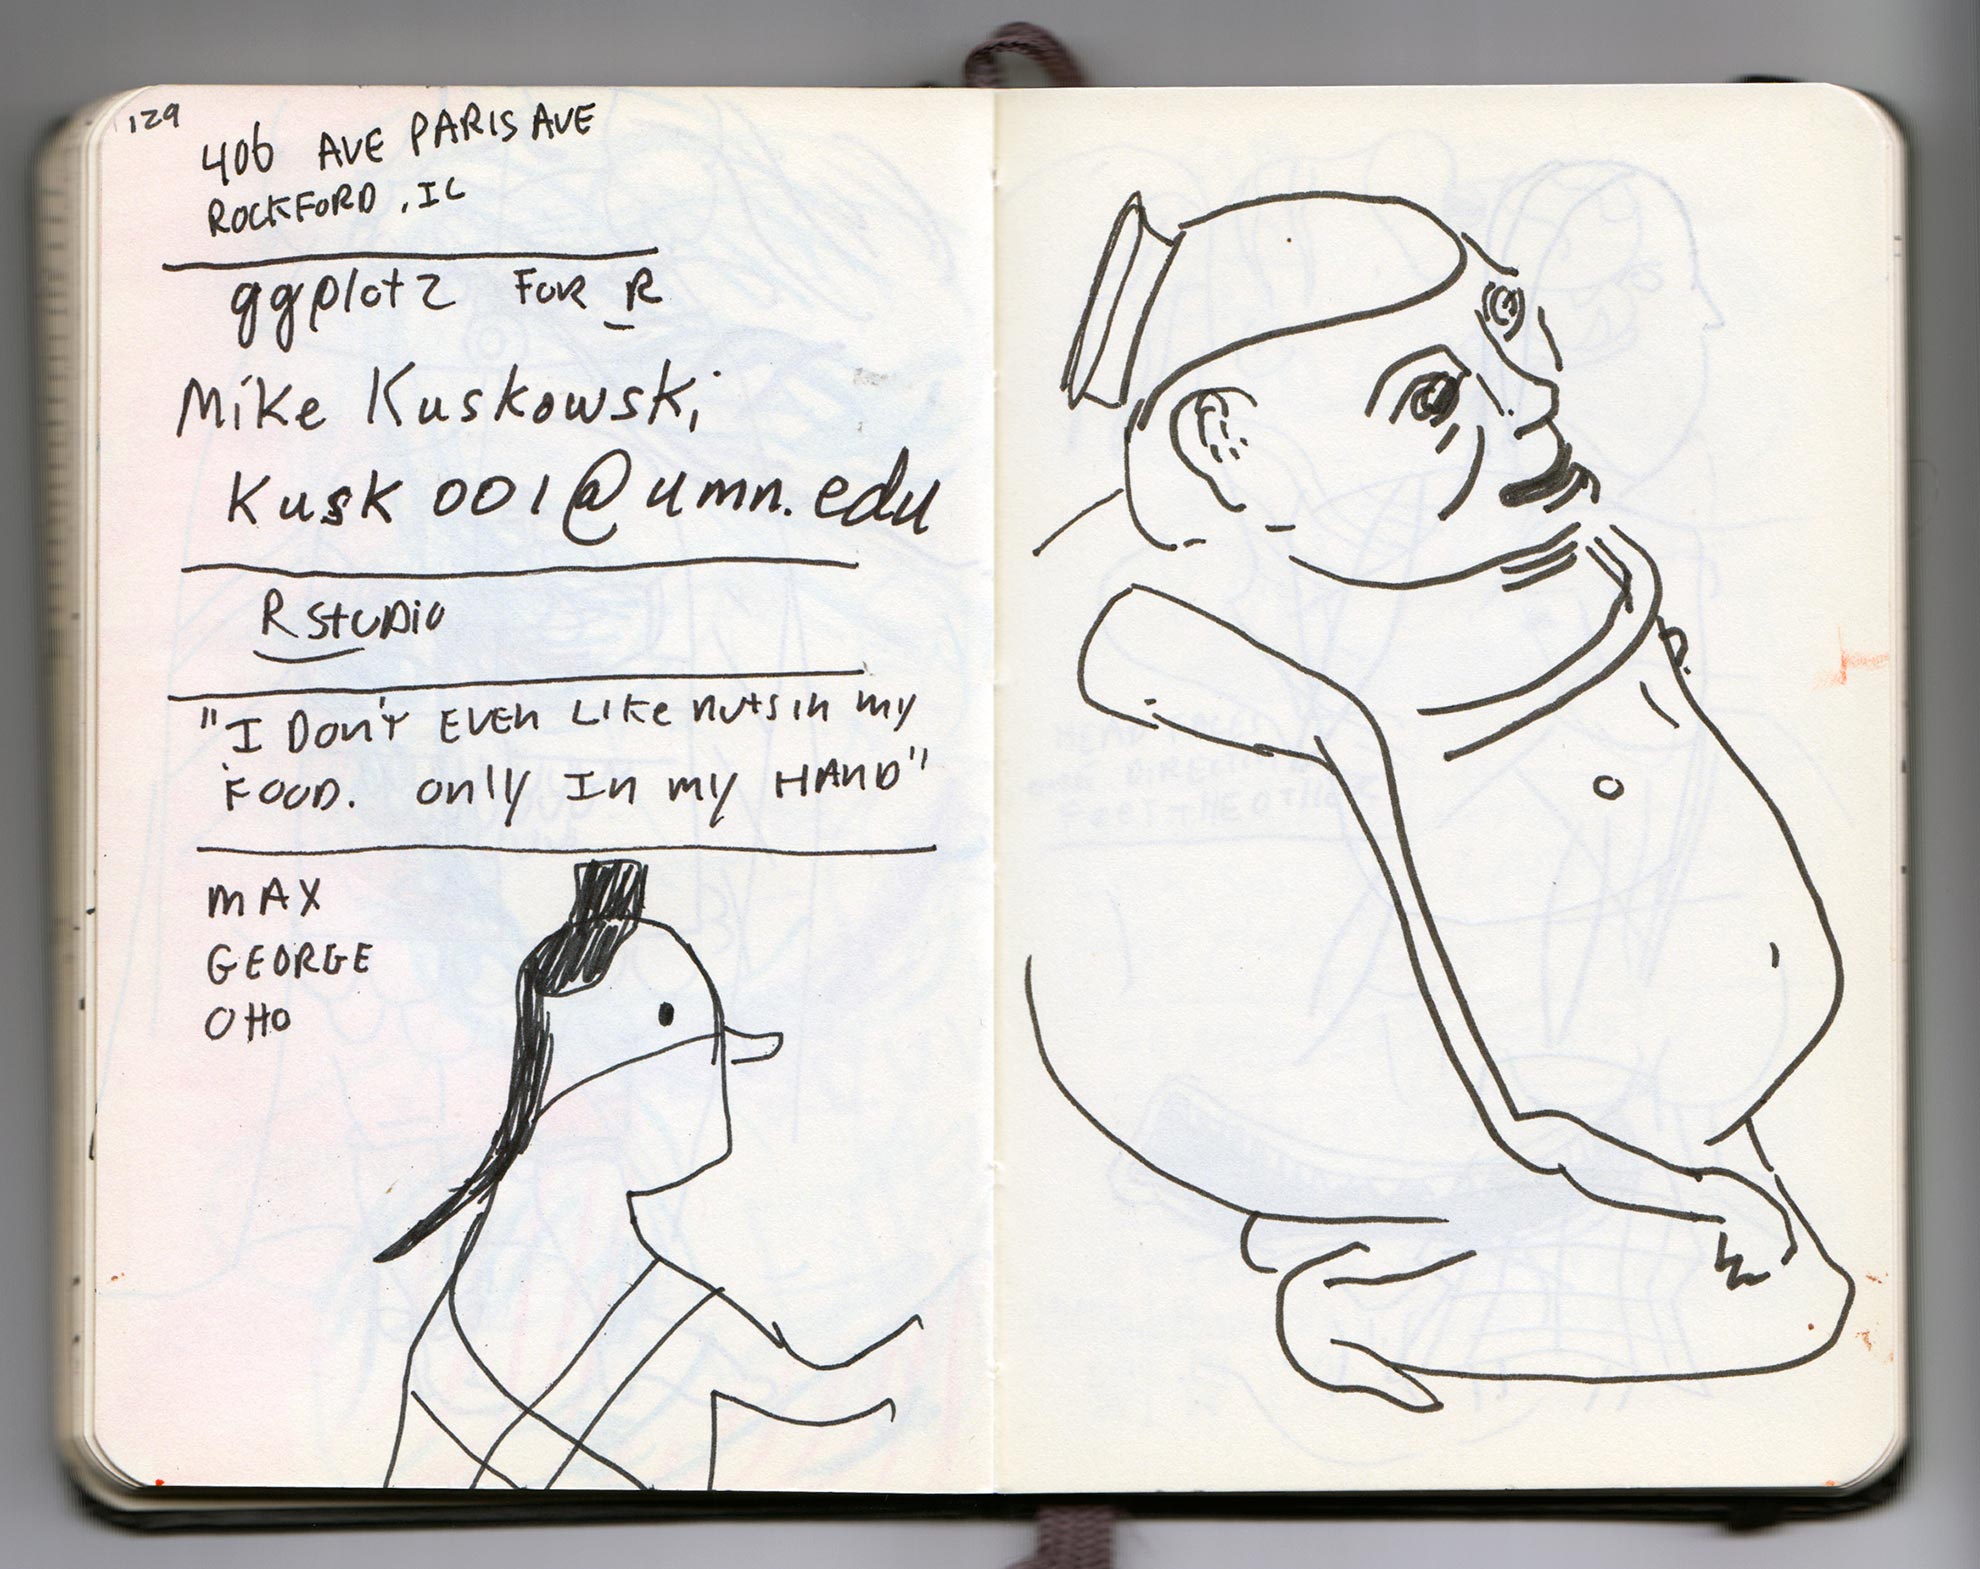 129
406 AVE PARIS AVE
ROCKFORD, IL
ggplot2 FOR R
Mike Kuskowski
Kusk001@umn.edu
R STUDIO
"I DON'T EVEN LIKE NUTS IN MY
FOOD. ONLY IN MY HAND"
MAX
GEORGE
OTTO